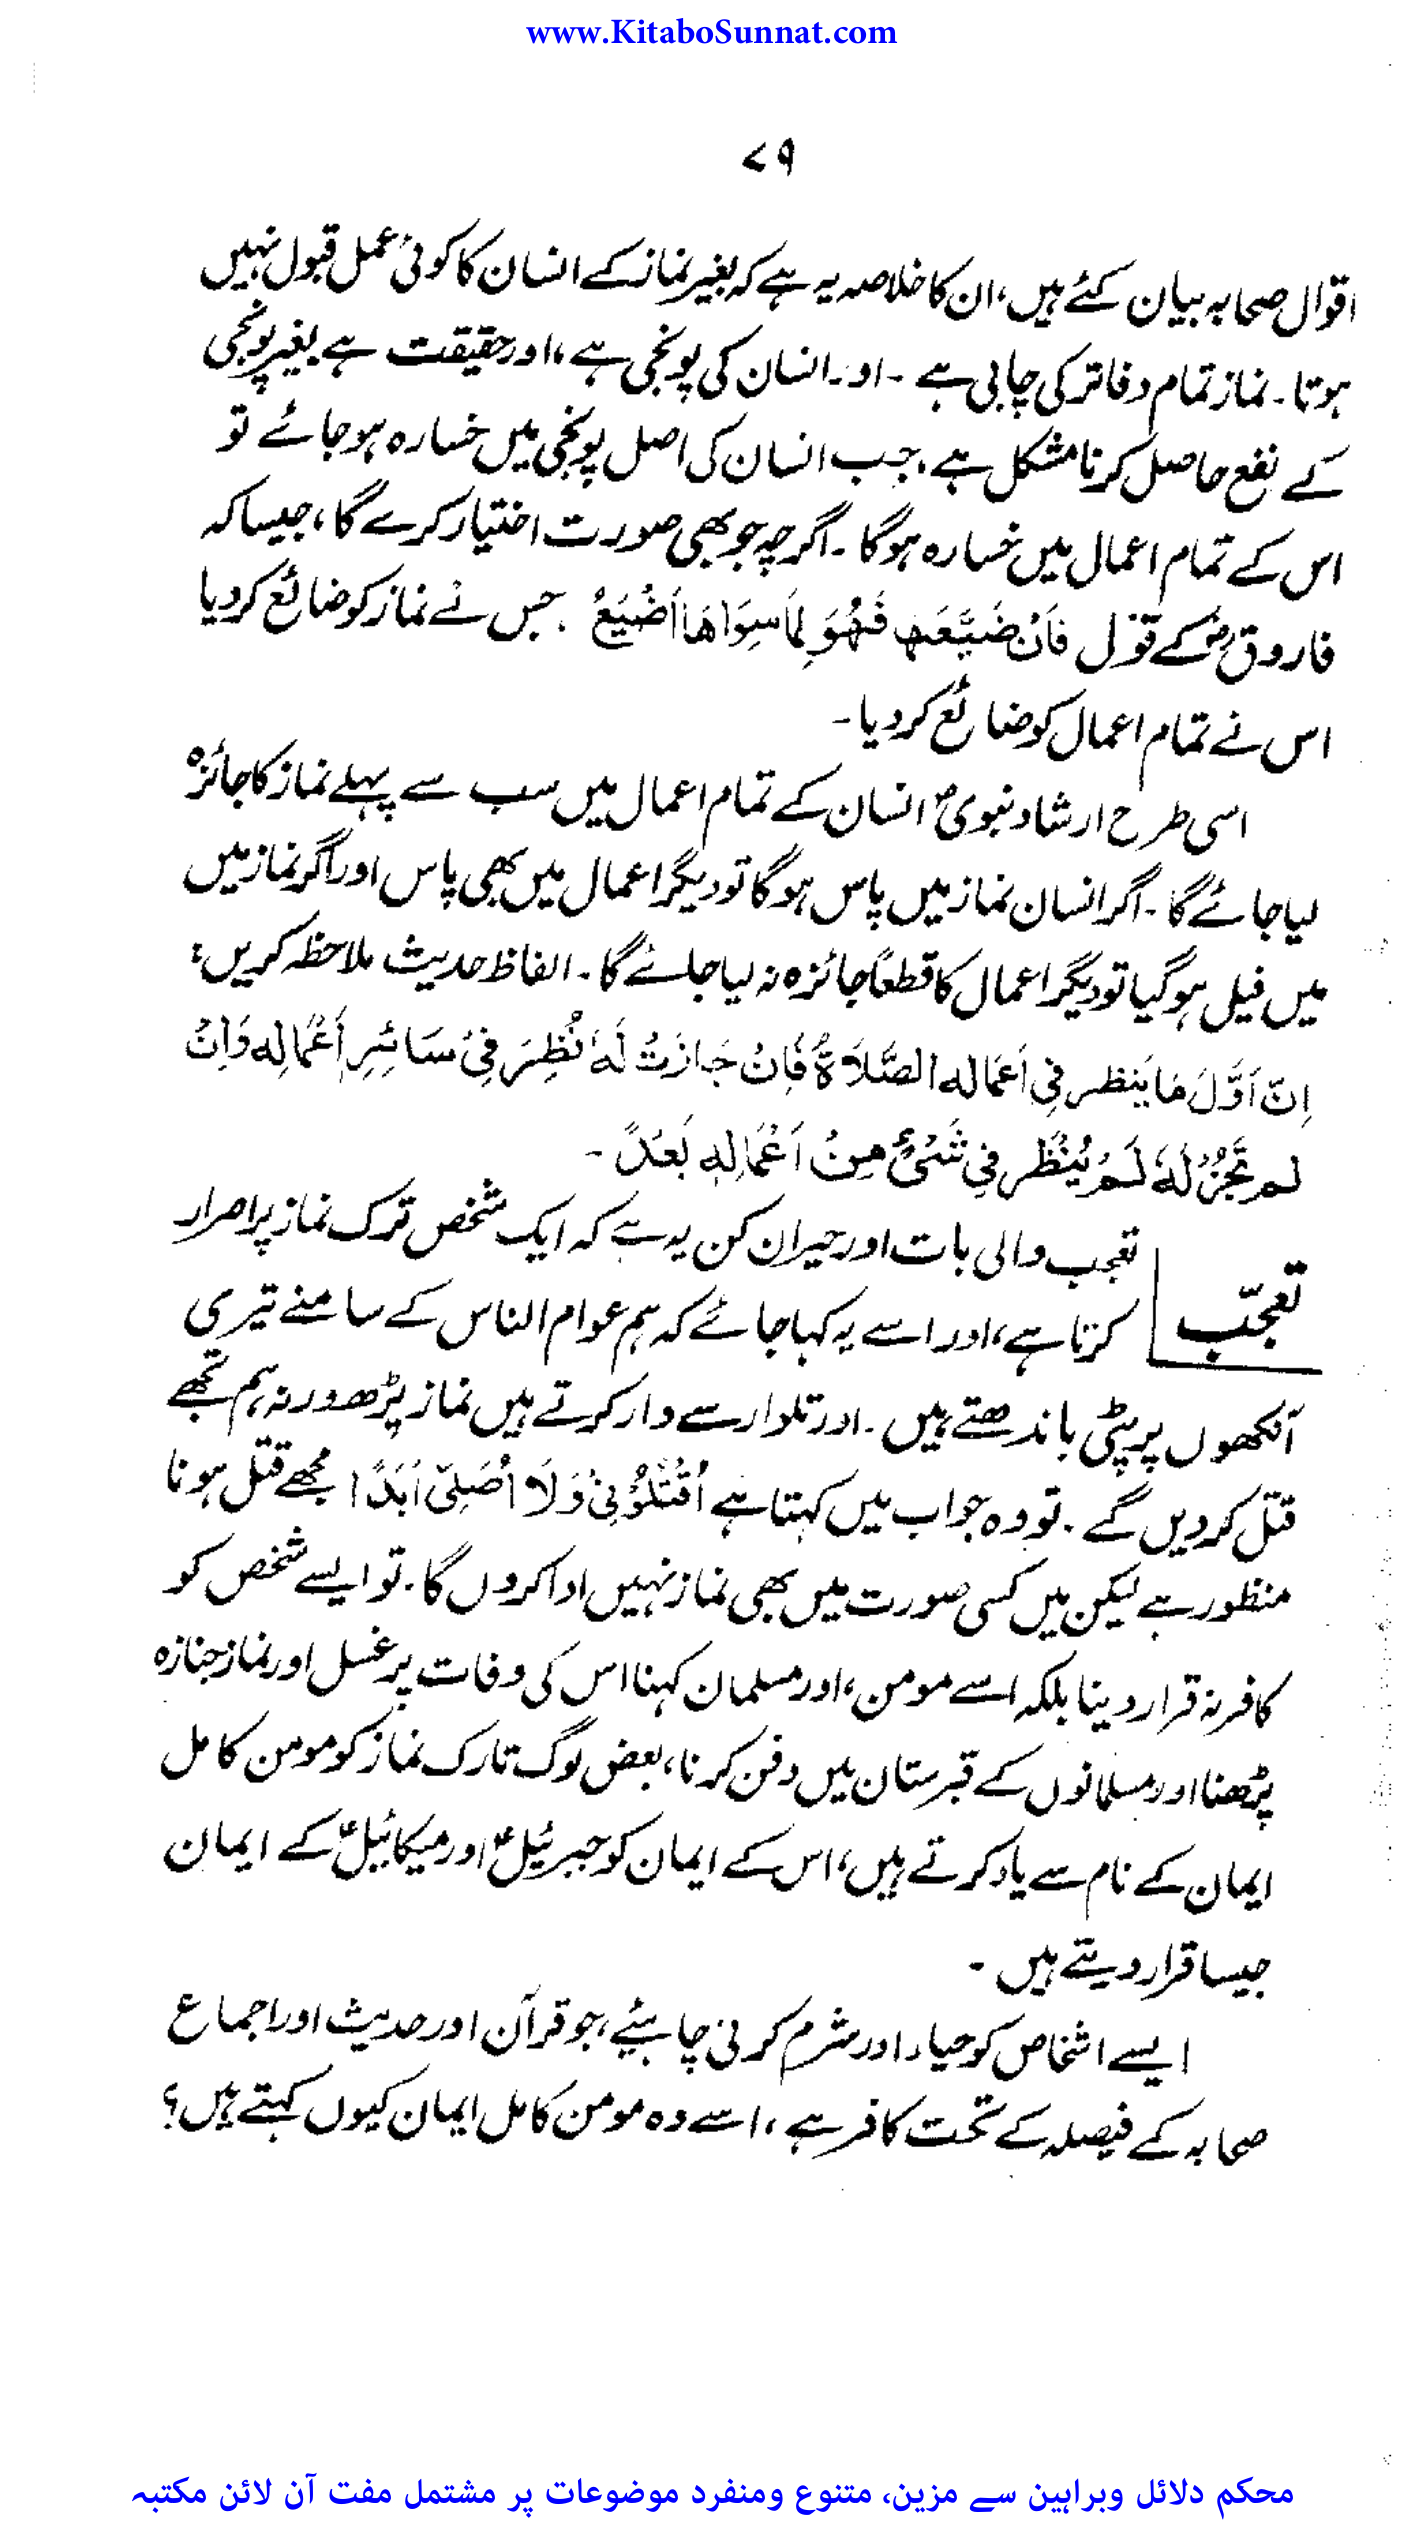 www.KitaboSunnat.com
۷۹
اقوال صحابہ بیان کئے ہیں، ان کا خلاصہ یہ ہے کہ بغیر نماز کے انسان کا کوئی عمل قبول نہیں
ہوتا ۔ نماز تمام دفاتر کی چابی ہے ۔ اور انسان کی پونجی ہے، اور حقیقت ہے بغیر پونجی
کے نفع حاصل کرنا مشکل ہے، جب انسان کی اصل پونجی میں خسارہ ہو جائے تو
اس کے تمام اعمال میں خسارہ ہوگا ۔ اگرچہ جو بھی صورت اختیار کرے گا، جیسا کہ
فاروقؓ کے قول فَاَنْ ضَیَّعَھا فَھُوَ لِمَا سِوَاھَا اَضْیَعُ ۔ جس نے نماز کو ضائع کر دیا
اس نے تمام اعمال کو ضائع کر دیا ۔
اسی طرح ارشاد نبویؐ انسان کے تمام اعمال میں سب سے پہلے نماز کا جائزہ
لیا جائے گا ۔ اگر انسان نماز میں پاس ہو گا تو دیگر اعمال میں بھی پاس اور اگر نماز میں
میں فیل ہو گیا تو دیگر اعمال کا قطعاً جائزہ نہ لیا جائے گا ۔ الفاظ حدیث ملاحظہ کریں :
اِنّ اَوَّلَ مَا یَنظر فِی اَعَمَالہ الصَّلَاۃُ فَاِنُ جَازَتُ لَہٗ نُظِرَ فِیُ سَائِرِ أَعْمَالِہ وَاِنْ
لم تَجُزْ لَہٗ لَمْ یُنْظَر فِی شَیْئٍ مِنْ اَعْمَالِہِ بَعَدْ ۔
تعجّب
تعجب والی بات اور حیران کن یہ ہے کہ ایک شخص ترک نماز پر اصرار
کرتا ہے، اور اسے یہ کہا جائے کہ ہم عوام الناس کے سامنے تیری
آنکھوں پر پٹی باندھتے ہیں ۔ اور تلوار سے وار کرتے ہیں نماز پڑھ ورنہ ہم تجھے
قتل کر دیں گے ۔ تو وہ جواب میں کہتا ہے اُقْتُلُوْنِیْ وَلَا اُصَلِّیْ اَبَدًا مجھے قتل ہونا
منظور ہے لیکن میں کسی صورت میں بھی نماز نہیں ادا کروں گا ۔ تو ایسے شخص کو
کافر نہ قرار دینا بلکہ اسے مومن، اور مسلمان کہنا اس کی وفات پر غسل اور نماز جنازہ
پڑھنا اور مسلمانوں کے قبرستان میں دفن کرنا، بعض لوگ تارک نماز کو مومن کامل
ایمان کے نام سے یاد کرتے ہیں، اس کے ایمان کو جبرئیلؑ اور میکائیلؑ کے ایمان
جیسا قرار دیتے ہیں ۔
ایسے اشخاص کو حیاء اور شرم کرنی چاہئیے، جو قرآن اور حدیث اور اجماع
صحابہ کے فیصلہ کے تحت کافر ہے، اسے وہ مومن کامل ایمان کیوں کہتے ہیں؟
محکم دلائل وبراہین سے مزین، متنوع ومنفرد موضوعات پر مشتمل مفت آن لائن مکتبہ